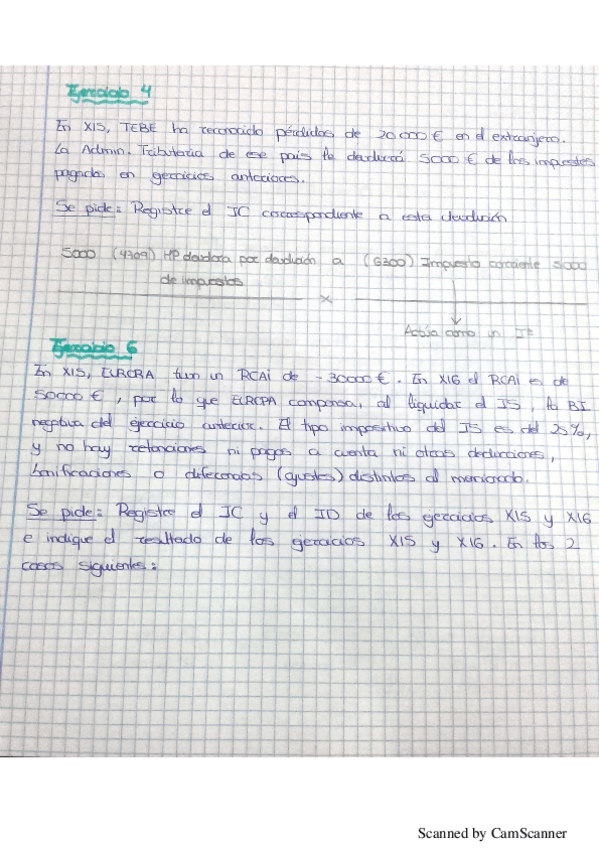 Ejercicio 4
En X15, TEBE ha reconocido pérdidas de 20.000 € en el extranjero.
La Admin. Tributaria de ese país le devolverá 5000 € de los impuestos
pagados en ejercicios anteriores.
Se pide: Registre el IC correspondiente a esta devolución
5000 (4709) HP deudora por devolución a (6300) Impuesto corriente 5000
de impuestos
x
Actúa como un I⁺
Ejercicio 6
En X15, EUROPA tuvo un RCAI de -30000 €. En X16 el RCAI es de
50000 €, por lo que EUROPA compensa, al liquidar el IS, la BI
negativa del ejercicio anterior. El tipo impositivo del IS es del 25%,
y no hay retenciones ni pagos a cuenta ni otras deducciones,
bonificaciones o diferencias (ajustes) distintos al mencionado.
Se pide: Registre el IC y el ID de los ejercicios X15 y X16
e indique el resultado de los ejercicios X15 y X16. En los 2
casos siguientes:
Scanned by CamScanner